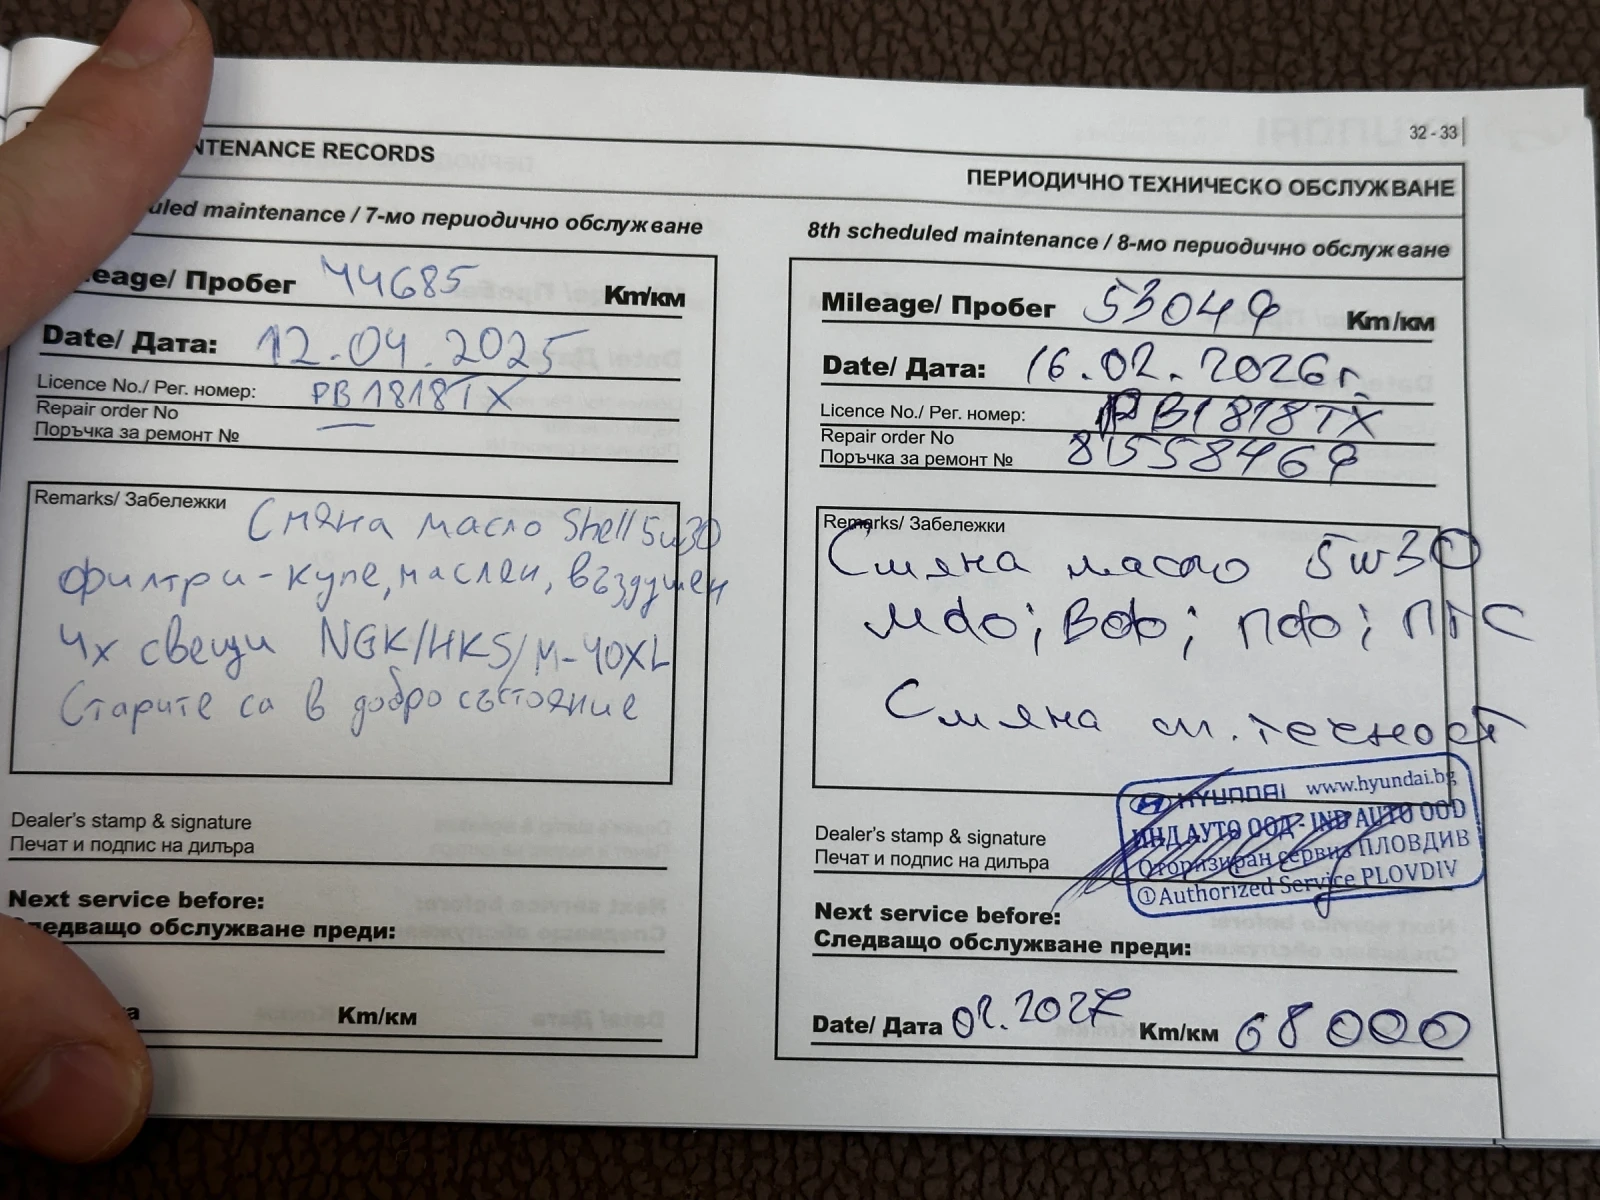 32 - 33
NTENANCE RECORDS
ПЕРИОДИЧНО ТЕХНИЧЕСКО ОБСЛУЖВАНЕ
uled maintenance / 7-мо периодично обслужване
eage/ Пробег 44685 Km/км
Date/ Дата: 12.04.2025
Licence No./ Рег. номер: PB1818TX
Repair order No
Поръчка за ремонт №
Remarks/ Забележки
Смяна масло Shell 5w30
филтри-купе, маслен, въздушен
4x свещи NGK/HKS/M-40XL
Старите са в добро състояние
Dealer's stamp & signature
Печат и подпис на дилъра
Next service before:
ледващо обслужване преди:
а Km/км
8th scheduled maintenance / 8-мо периодично обслужване
Mileage/ Пробег 53049 Km/км
Date/ Дата: 16.02.2026г
Licence No./ Рег. номер: PB1818TX
Repair order No
Поръчка за ремонт №
Remarks/ Забележки
Смяна масло 5w30
Мфо; Вфо; Пфо; ПГС
Смяна сп. течност
HYUNDAI www.hyundai.bg
ИНД АУТО ООД - IND AUTO OOD
Оторизиран сервиз ПЛОВДИВ
① Authorized Service PLOVDIV
Dealer's stamp & signature
Печат и подпис на дилъра
Next service before:
Следващо обслужване преди:
Date/ Дата 02.2027 Km/км 68000